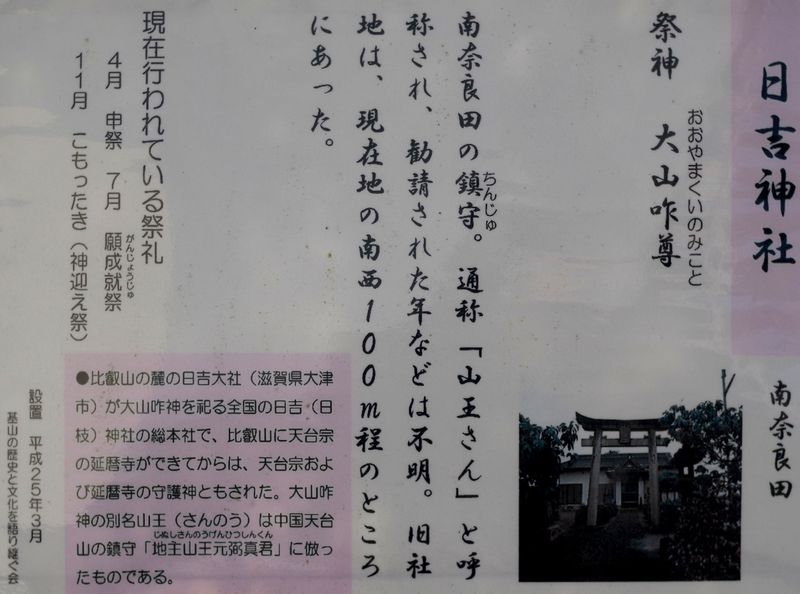 日吉神社
南奈良田
祭神　大山咋尊
おおやまくいのみこと
南奈良田の鎮守。通称「山王さん」と呼
ちんじゅ
称され、勧請された年などは不明。旧社
地は、現在地の南西100m程のところ
にあった。
現在行われている祭礼
4月　申祭　7月　願成就祭
がんじょうじゅ
11月　こもったき（神迎え祭）
●比叡山の麓の日吉大社（滋賀県大津
市）が大山咋神を祀る全国の日吉（日
枝）神社の総本社で、比叡山に天台宗
の延暦寺ができてからは、天台宗およ
び延暦寺の守護神ともされた。大山咋
神の別名山王（さんのう）は中国天台
じぬしさんのうげんひつしんくん
山の鎮守「地主山王元弼真君」に倣っ
たものである。
設置　平成25年3月
基山の歴史と文化を語り継ぐ会